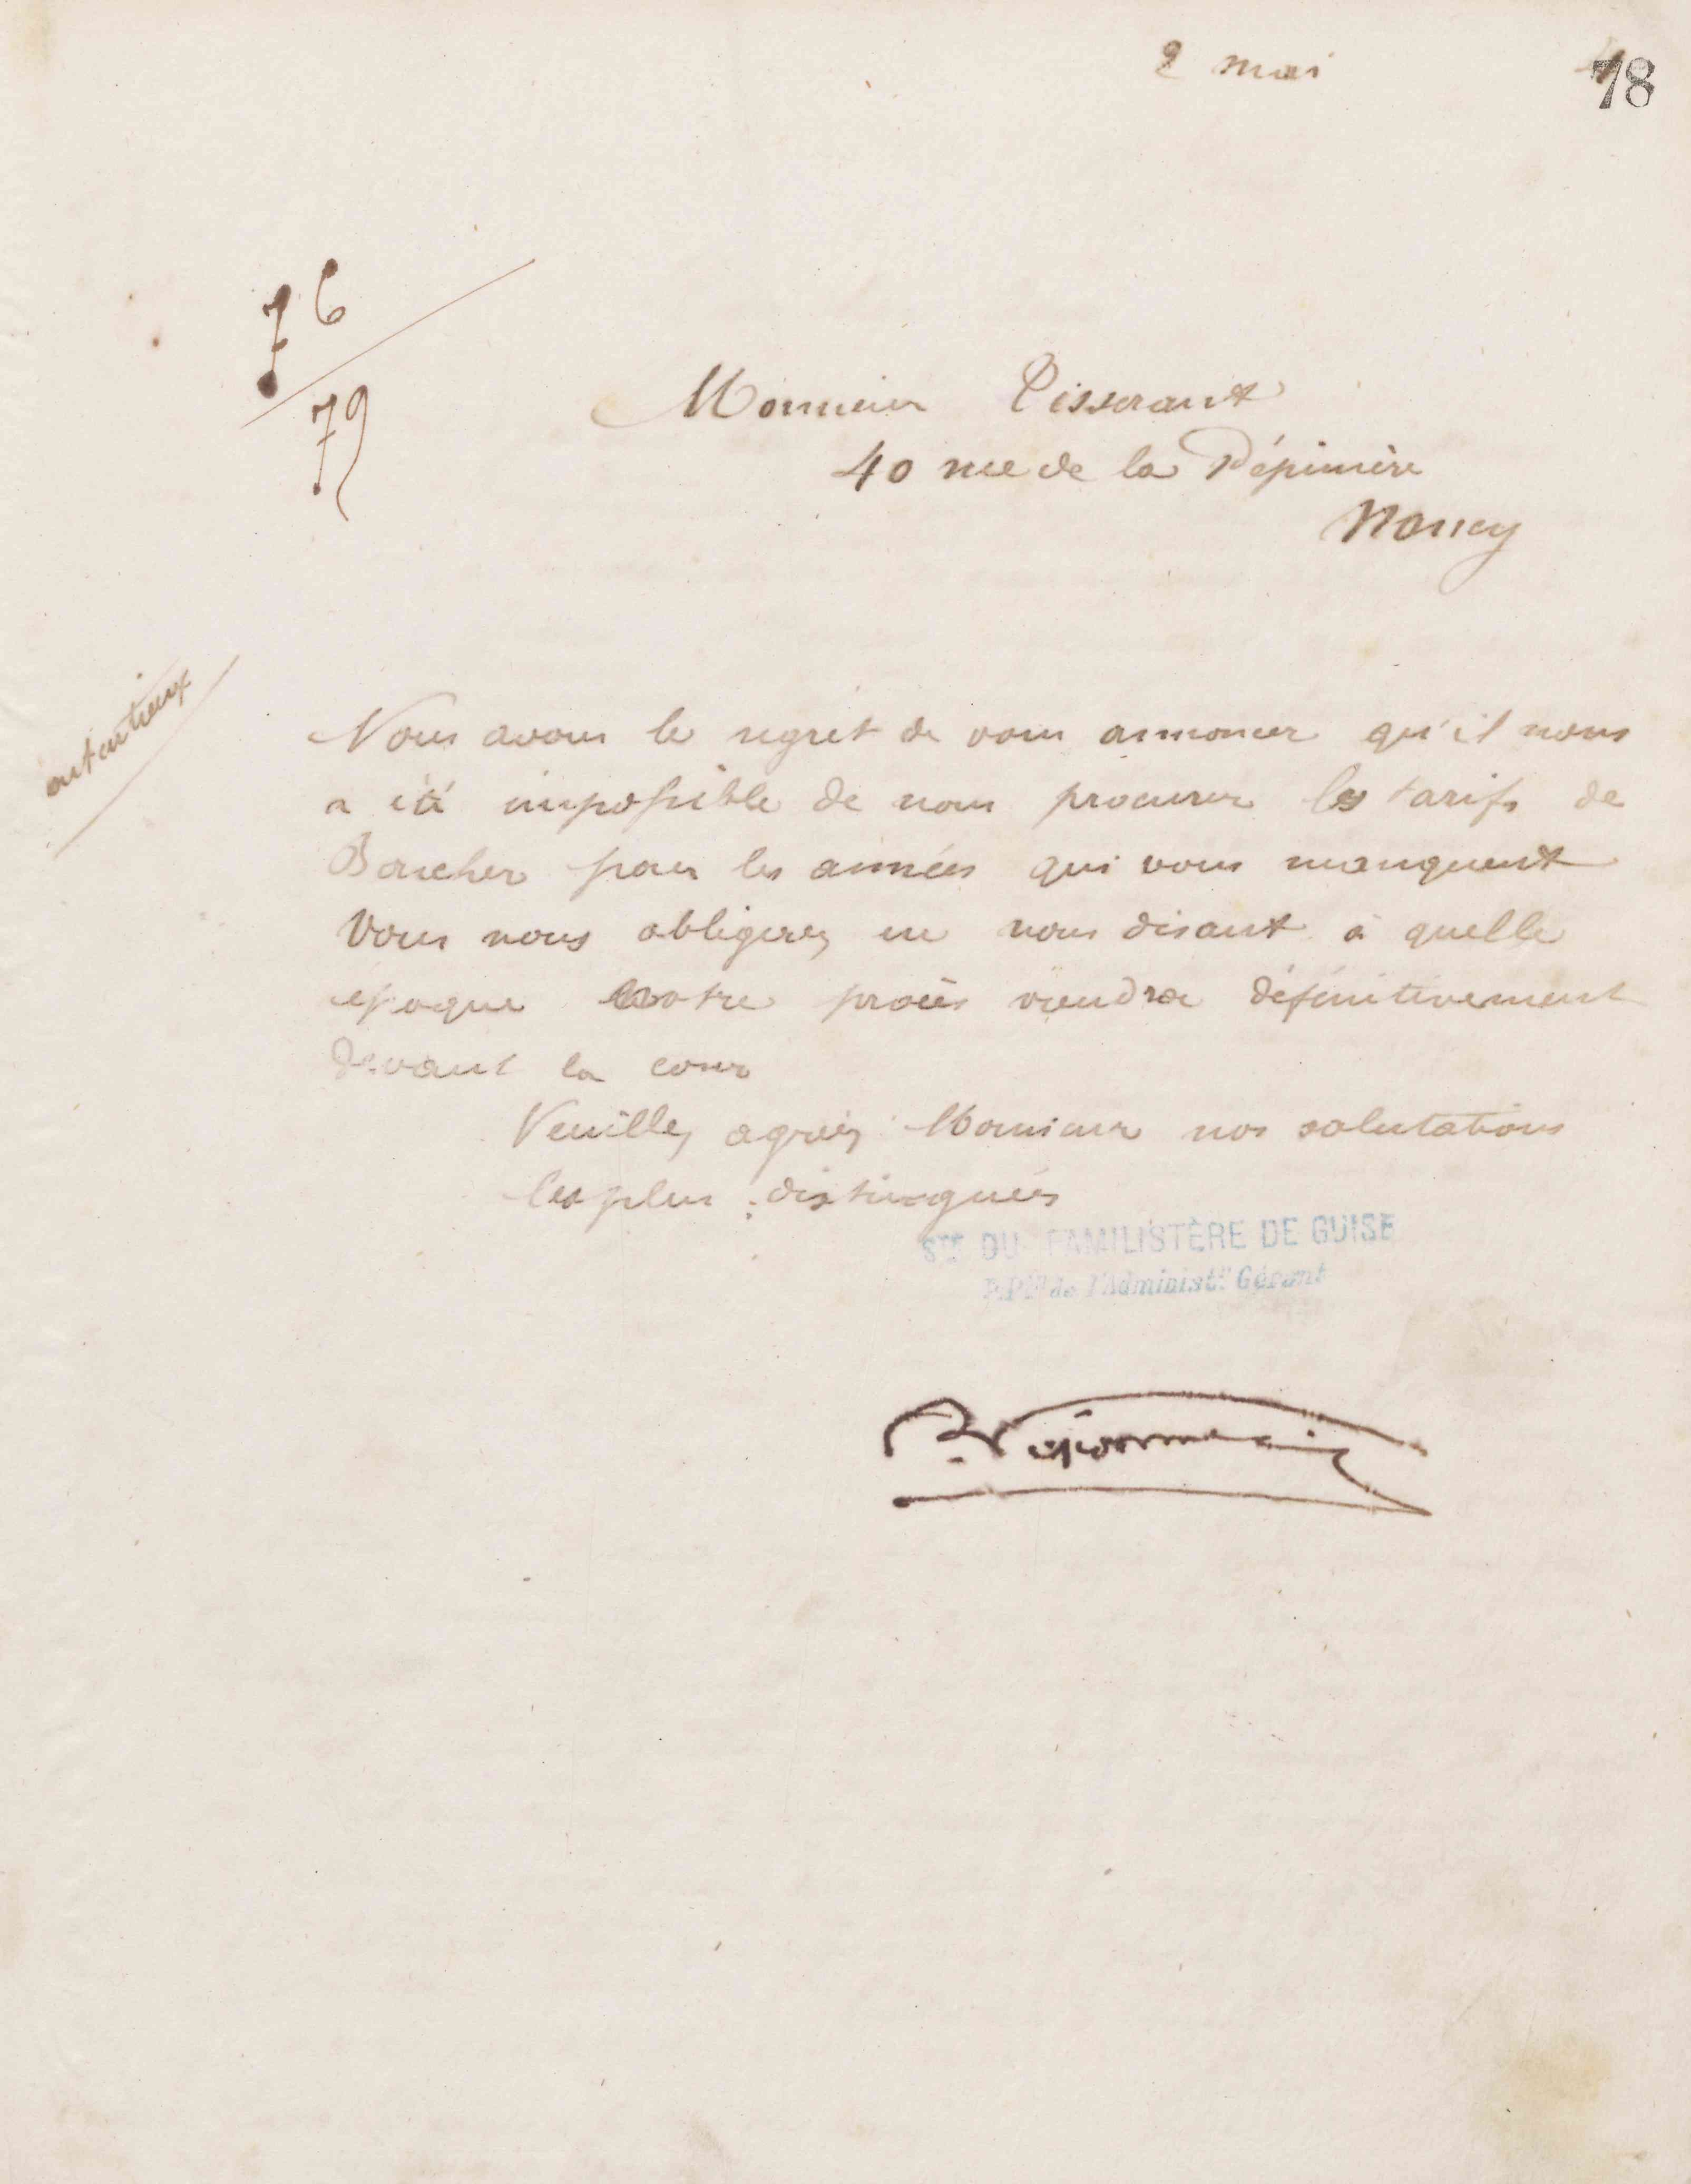 2 mai
78
76
79
Monsieur Tisserant
40 rue de la Pépinière
Nancy
Nous avons le regret de vous annoncer qu'il nous
a été impossible de nous procurer les tarifs de
Boucher pour les années qui vous manquent
Vous nous obligerez en nous disant à quelle
époque votre procès viendra définitivement
devant la cour
Veuillez agréer Monsieur nos salutations
les plus distinguées
Sté DU FAMILISTÈRE DE GUISE
P.Pon de l'Administr Gérant